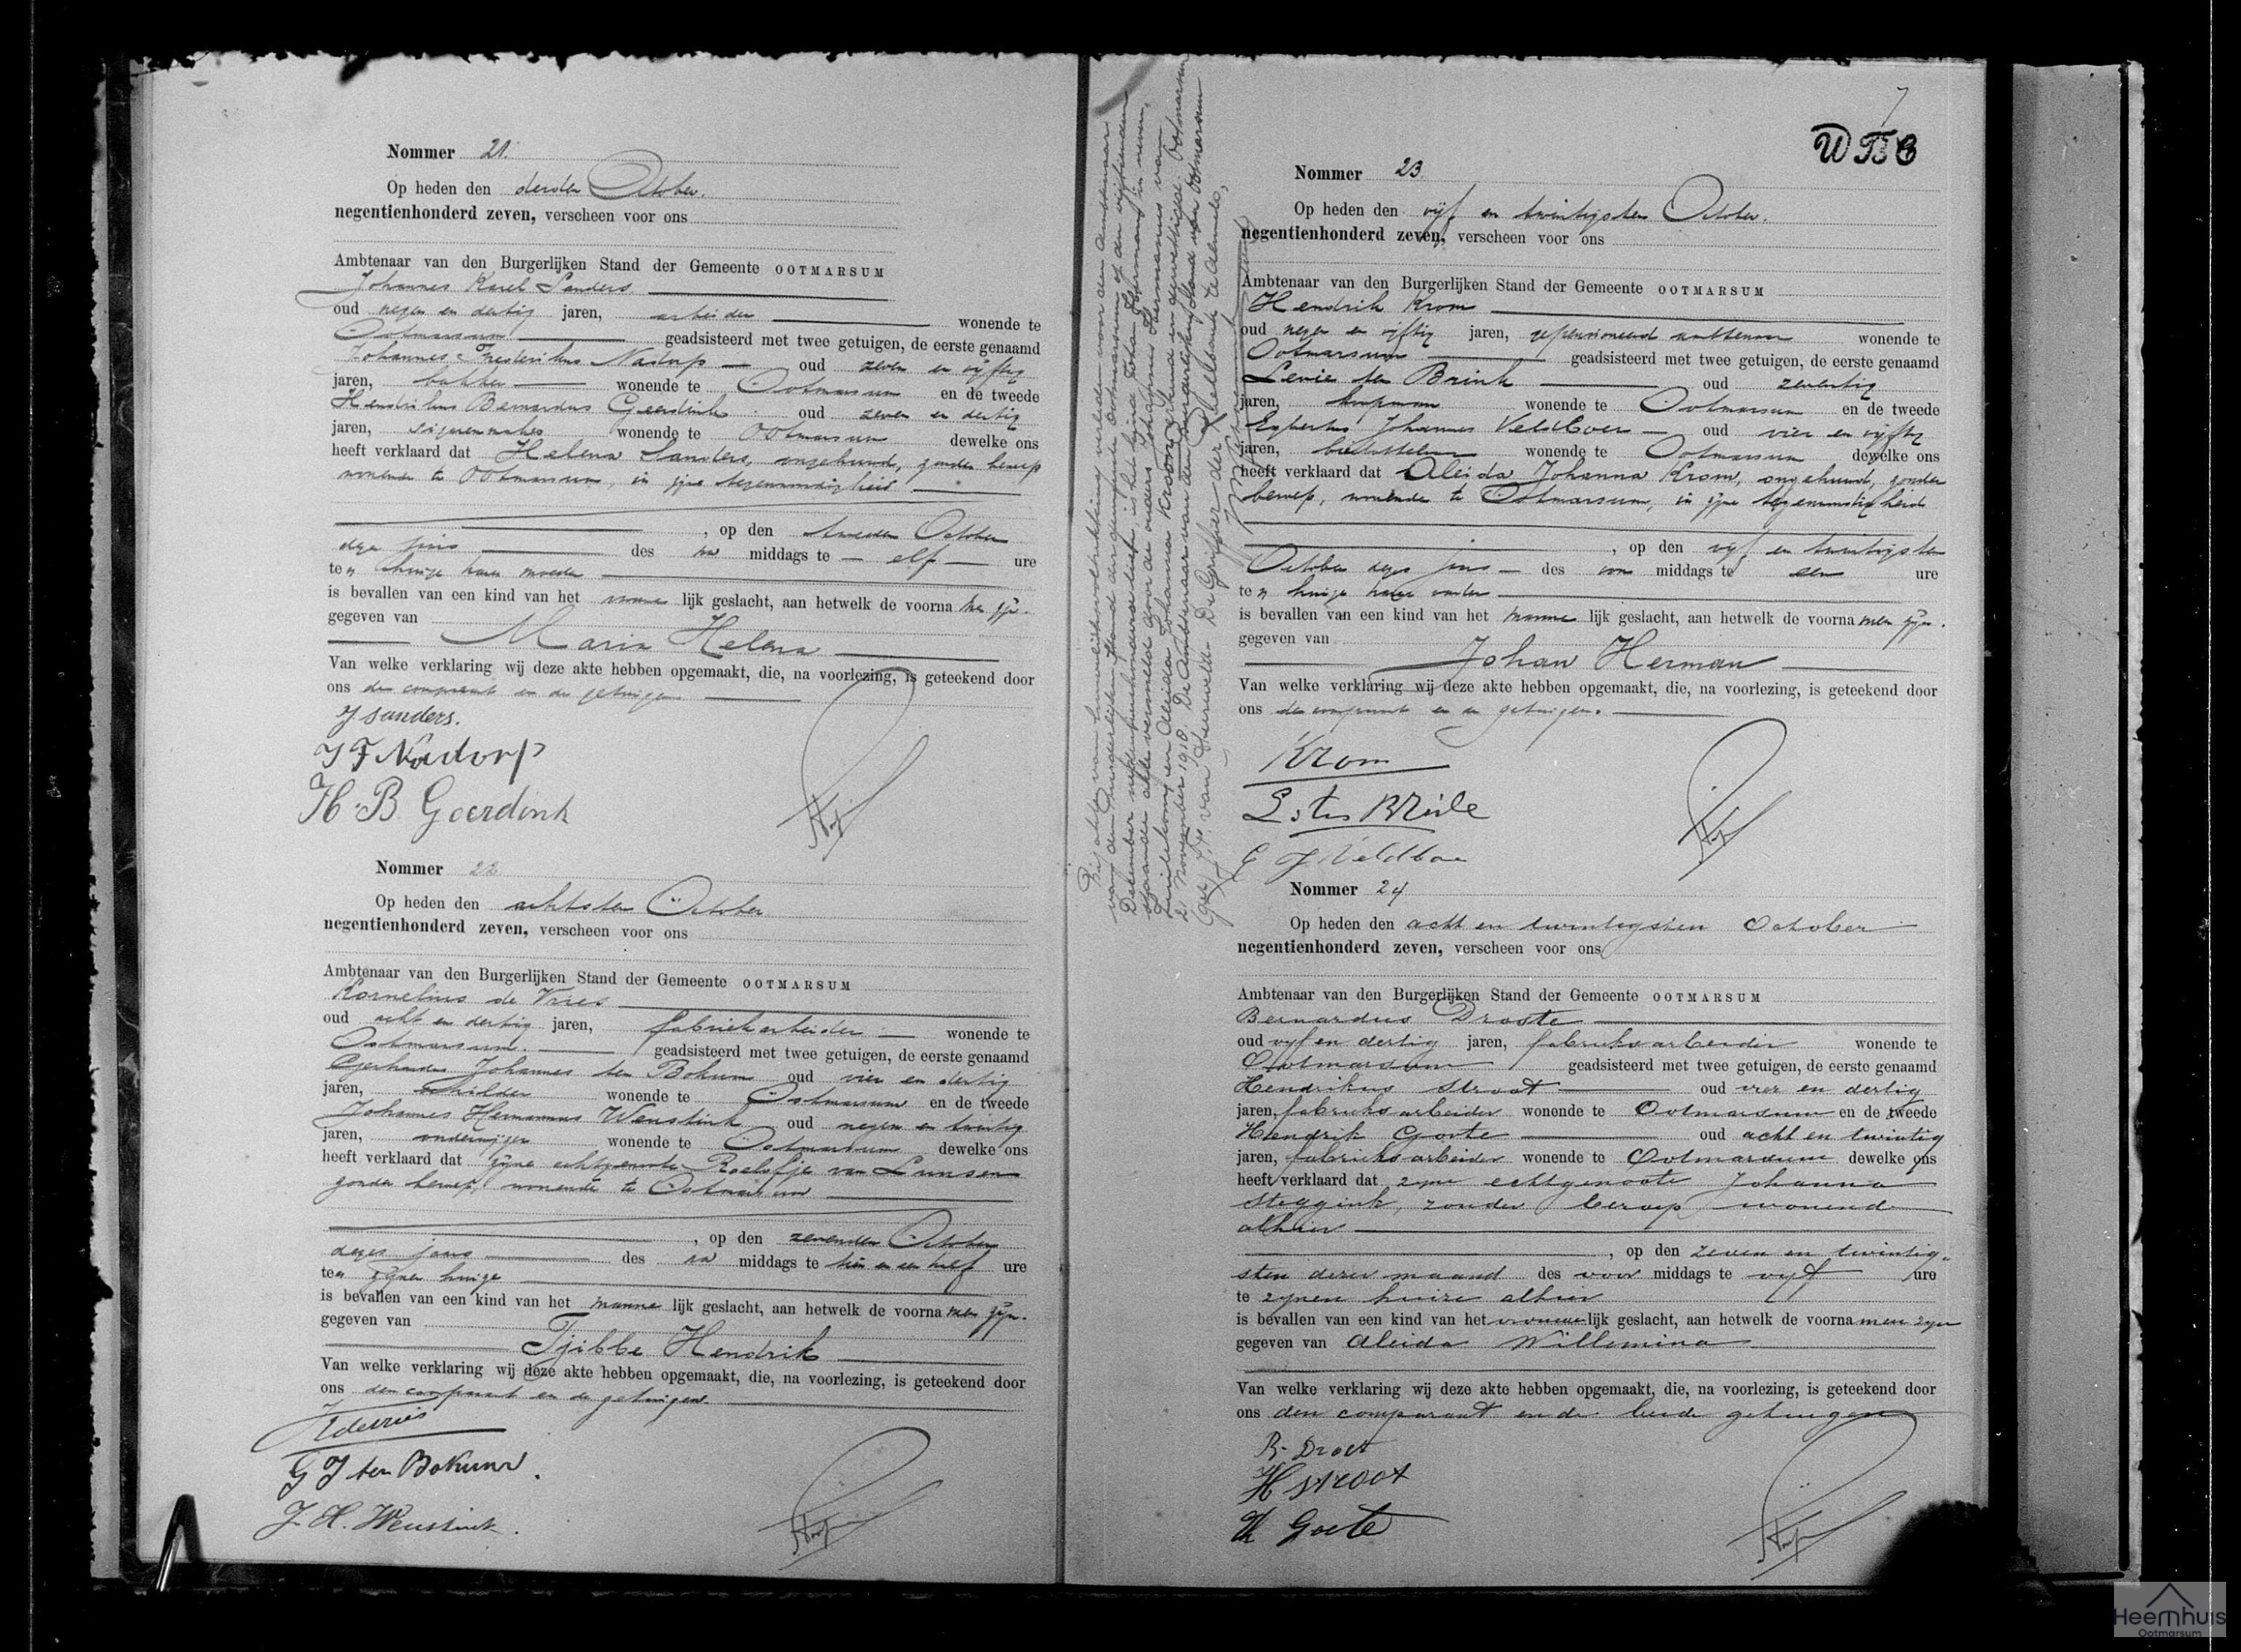 Nommer 21.
Op heden den derden October.
negentienhonderd zeven, verscheen voor ons
Ambtenaar van den Burgerlijken Stand der Gemeente OOTMARSUM
Johannes Karel Sanders
oud negen en dertig jaren, arbeider wonende te
Ootmarsum geadsisteerd met twee getuigen, de eerste genaamd
Johannes Frederikus Nadorp oud zeven en vijftig
jaren, bakker wonende te Ootmarsum en de tweede
Hendrikus Bernardus Geerdink oud zeven en dertig
jaren, sigarenmaker wonende te Ootmarsum dewelke ons
heeft verklaard dat Helena Sanders, ongehuwd, zonder beroep
wonende te Ootmarsum, in zijne tegenwoordigheid
, op den tweeden October
dezes jaars des na middags te elf ure
ten huize harer moeder
is bevallen van een kind van het vrouwe lijk geslacht, aan hetwelk de voorna men zijn.
gegeven van
Maria Helena
Van welke verklaring wij deze akte hebben opgemaakt, die, na voorlezing, is geteekend door
ons den comparant en de getuigen
J Sanders.
J F Nadorp
H. B. Geerdink
Nommer 22
Op heden den achtsten October
negentienhonderd zeven, verscheen voor ons
Ambtenaar van den Burgerlijken Stand der Gemeente OOTMARSUM
Kornelius de Vries
oud acht en dertig jaren, fabriekarbeider wonende te
Ootmarsum. geadsisteerd met twee getuigen, de eerste genaamd
Gerhardus Johannes ten Bokum oud vier en dertig
jaren, schilder wonende te Ootmarsum en de tweede
Johannes Hermannus Wenstink oud negen en twintig
jaren, onderwijzer wonende te Ootmarsum dewelke ons
heeft verklaard dat zijne echtgenoote Roelofje van Lunsen
zonder beroep, wonende te Ootmarsum
, op den zevenden October
dezes jaars des na middags te tien en een half ure
ten zijnen huize
is bevallen van een kind van het manne lijk geslacht, aan hetwelk de voorna men zijn.
gegeven van
Tjibbe Hendrik
Van welke verklaring wij deze akte hebben opgemaakt, die, na voorlezing, is geteekend door
ons den comparant en de getuigen.
K de Vries
G J ten Bokum.
J. H. Wenstink.
Bij akte van huwelijksvoltrekking verleden voor den Ambtenaar
van den Burgerlijken Stand der gemeente Ootmarsum op den
December is het kind Johan Herman in
akte vermeld door de ouders Johannes Hermannus van
en Aleida Johanna Krom erkend en gewettigd. Ootmarsum
21 November 1918. De Ambtenaar van den Burgerlijken Stand van Ootmarsum
De Griffier der Rechtbank te Almelo,
WBC
Nommer 23
Op heden den vijf en twintigsten October.
negentienhonderd zeven, verscheen voor ons
Ambtenaar van den Burgerlijken Stand der Gemeente OOTMARSUM
Hendrik Krom
oud negen en vijftig jaren, gepensioneerd wonende te
Ootmarsum geadsisteerd met twee getuigen, de eerste genaamd
Levie ten Brink oud zeventig
jaren, koopman wonende te Ootmarsum en de tweede
Egbertus Johannes Veldboer oud vier en vijftig
jaren, wonende te Ootmarsum dewelke ons
heeft verklaard dat Aleida Johanna Krom, ongehuwd, zonder
beroep, wonende te Ootmarsum, in zijne tegenwoordigheid
, op den vijf en twintigsten
October dezes jaars des voor middags te een ure
ten huize haars vader
is bevallen van een kind van het manne lijk geslacht, aan hetwelk de voorna men zijn.
gegeven van
Johan Herman
Van welke verklaring wij deze akte hebben opgemaakt, die, na voorlezing, is geteekend door
ons den comparant en de getuigen.
Krom
L ten Brink
E J Veldboer
Nommer 24
Op heden den acht en twintigsten October
negentienhonderd zeven, verscheen voor ons
Ambtenaar van den Burgerlijken Stand der Gemeente OOTMARSUM
Bernardus Droste
oud vijf en dertig jaren, fabrieksarbeider wonende te
Ootmarsum geadsisteerd met twee getuigen, de eerste genaamd
Hendrikus Stroot oud vier en dertig
jaren, fabrieksarbeider wonende te Ootmarsum en de tweede
Hendrik Goote oud acht en twintig
jaren, fabrieksarbeider wonende te Ootmarsum dewelke ons
heeft verklaard dat zijne echtgenoote Johanna
Steggink, zonder beroep wonend
alhier
, op den zeven en twintig-
sten dezer maand des voor middags te vijf ure
te zijnen huize alhier
is bevallen van een kind van het vrouwe lijk geslacht, aan hetwelk de voorna men zijn
gegeven van Aleida Willemina
Van welke verklaring wij deze akte hebben opgemaakt, die, na voorlezing, is geteekend door
ons den comparant en de beide getuigen
B. Drost
H Stroot
H Goete
Heemhuis
Ootmarsum